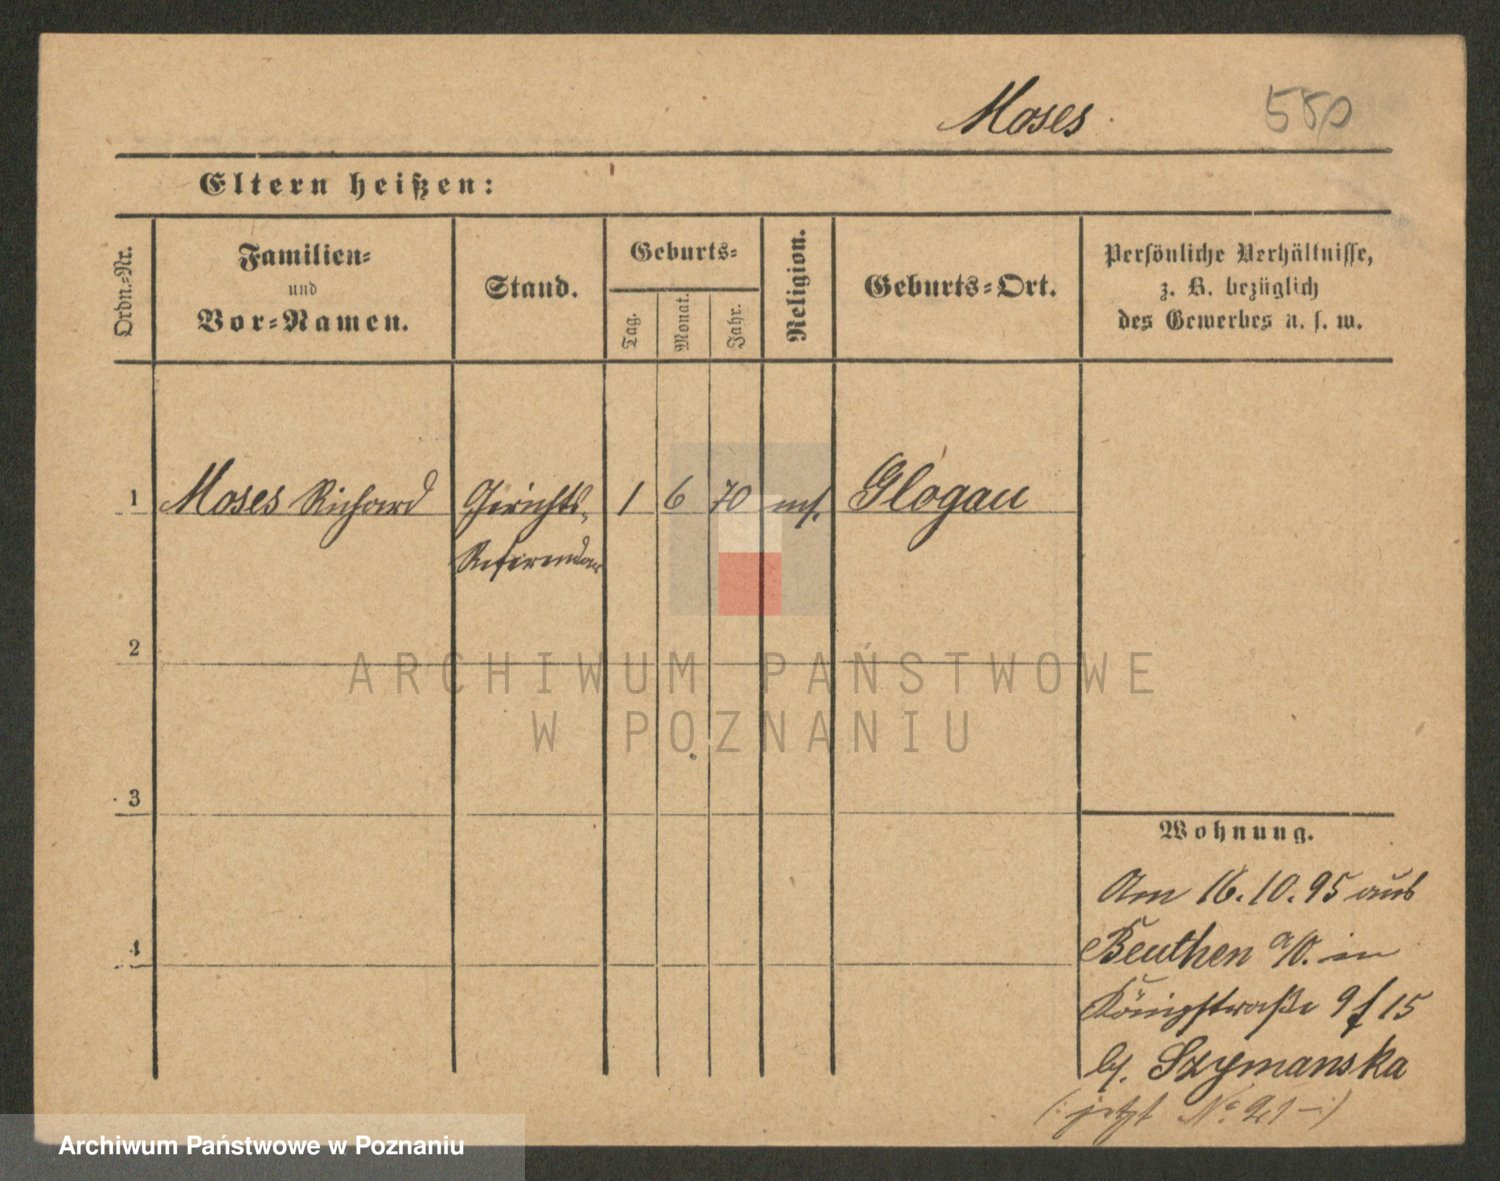 Moses 580
Eltern heißen:
Ordn.-Nr.
Familien-
und
Vor-Namen.
Stand.
Geburts-
Tag.
Monat.
Jahr.
Religion.
Geburts-Ort.
Persönliche Verhältnisse,
z. B. bezüglich
des Gewerbes u. s. w.
1 Moses Richard Gerichts- 1 6 70 mos. Glogau
Referendar
2
3
4
ARCHIWUM PAŃSTWOWE
W POZNANIU
Wohnung.
Am 16.10.95 aus
Beuthen a/O. in
Königstraße 9 f 15
bj. Szymanska
(: jetzt No 21 –:)
Archiwum Państwowe w Poznaniu